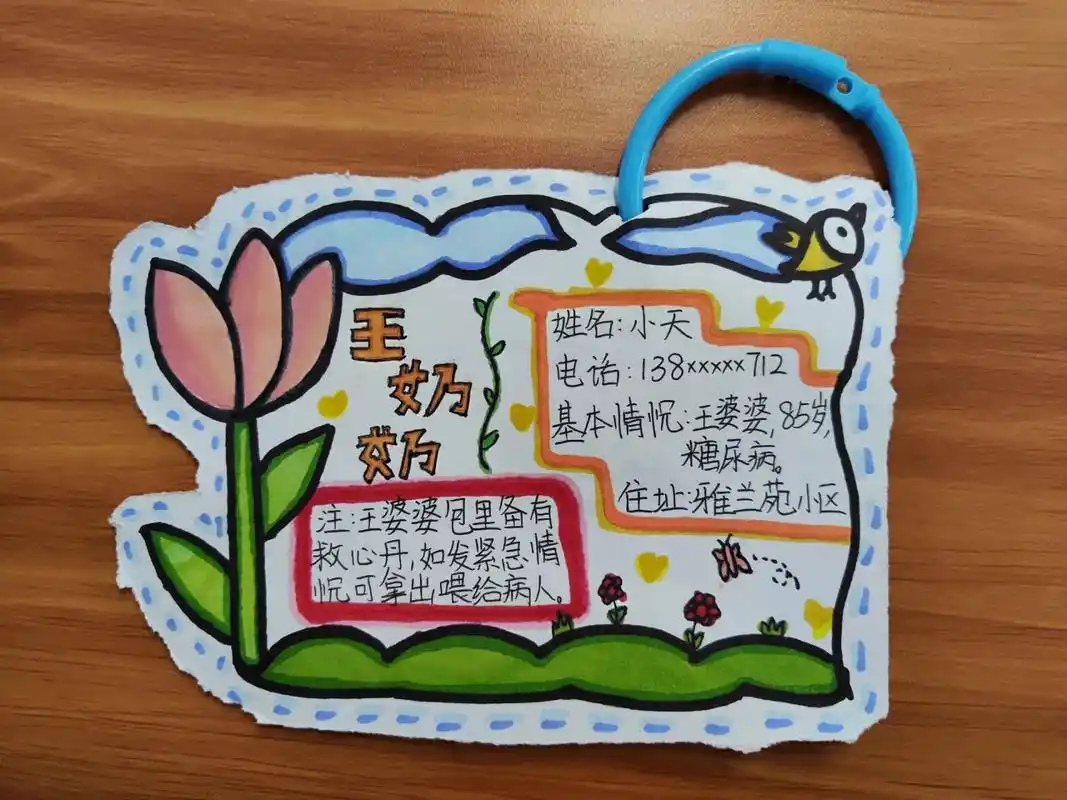 王
奶
奶
姓名:小天
电话:138xxxxx712
基本情况:王婆婆,85岁,
糖尿病。
住址:雅兰苑小区
注:王婆婆包里备有
救心丹,如发紧急情
况可拿出喂给病人。